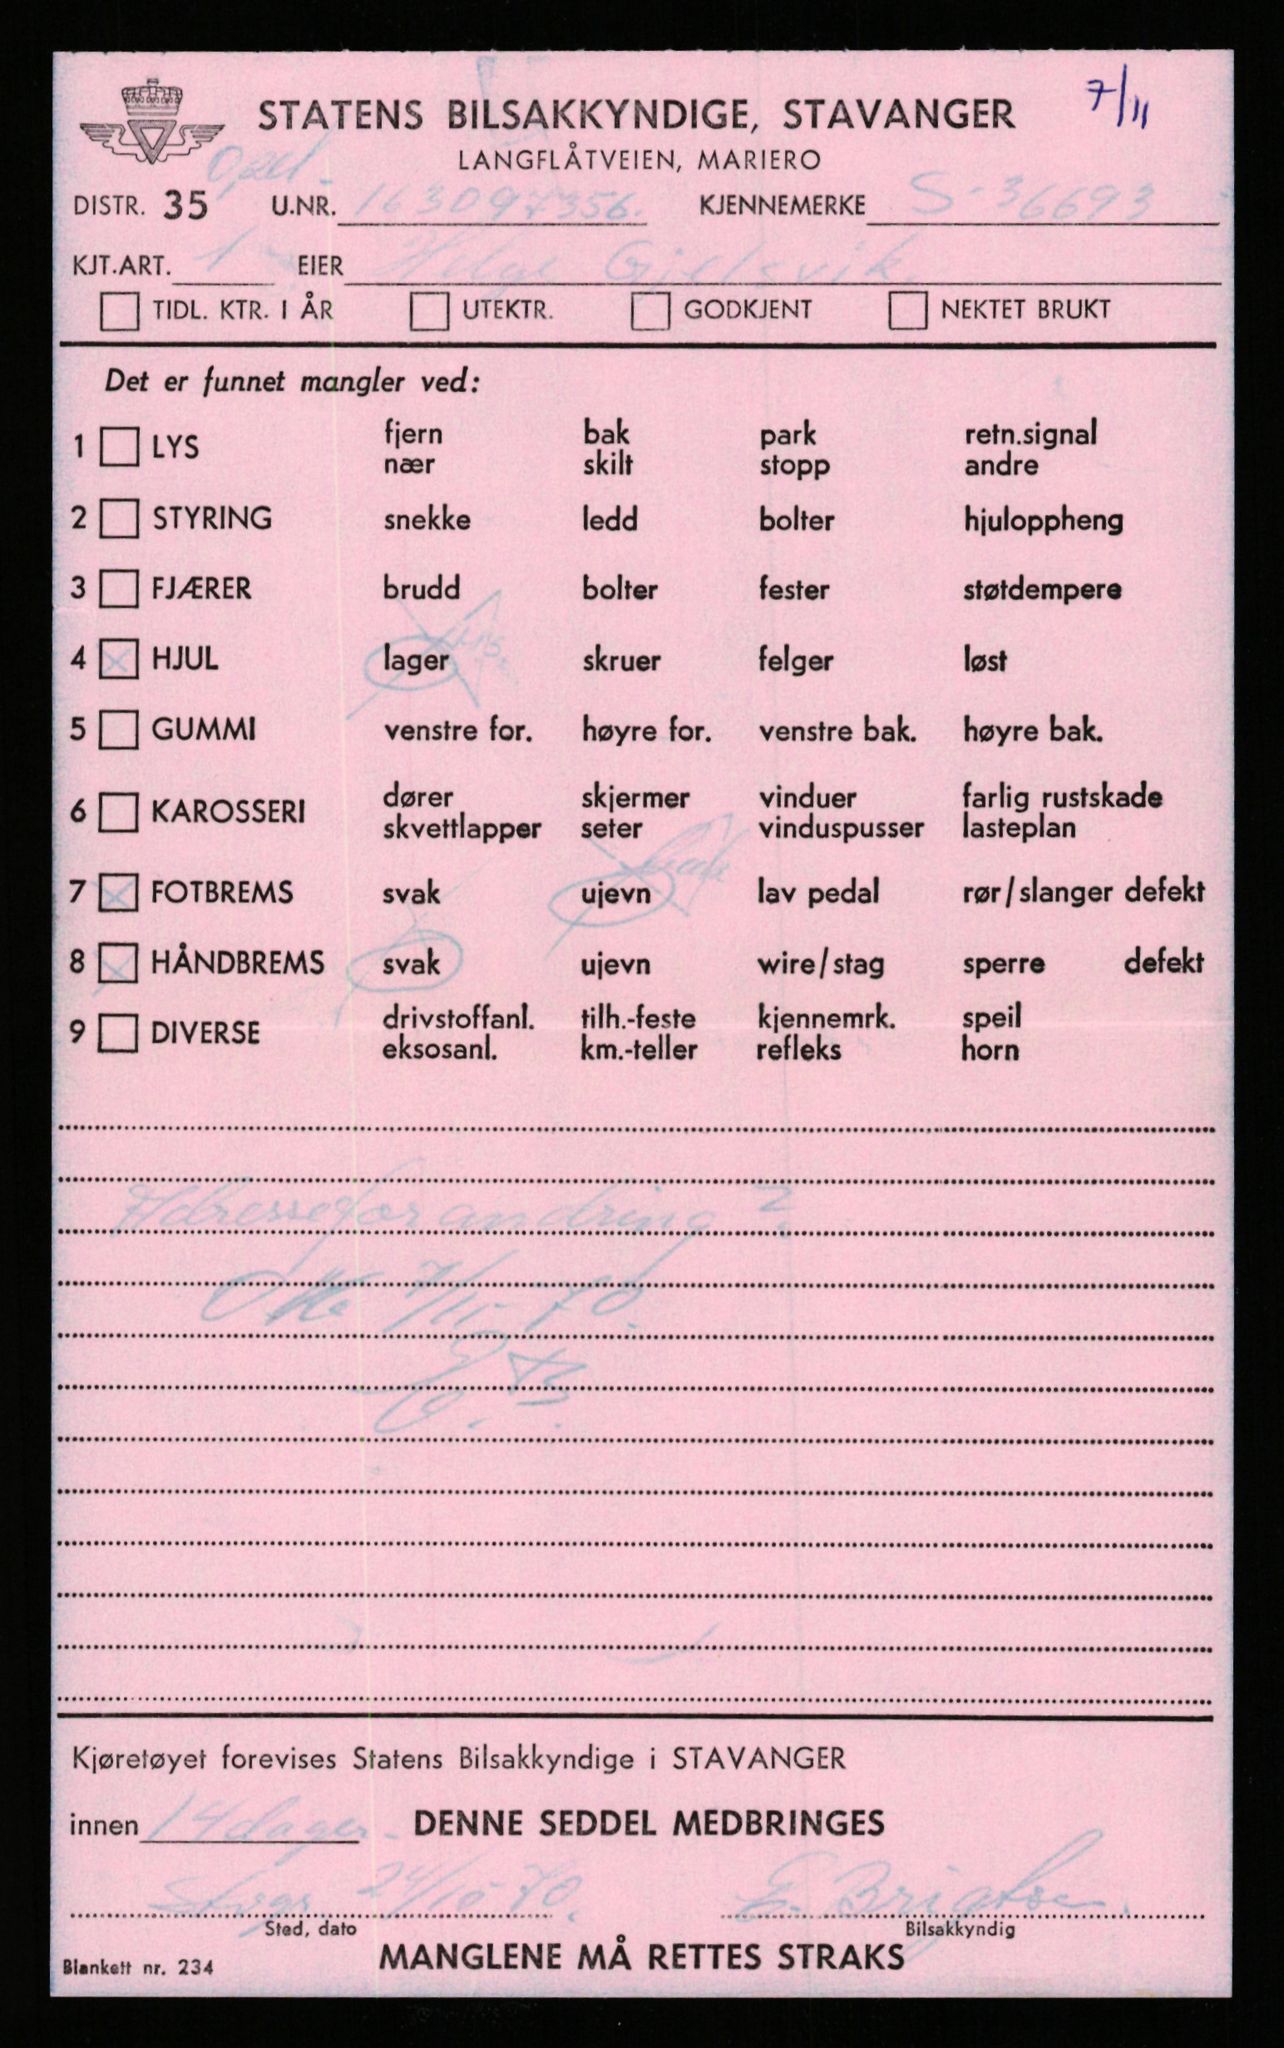 7/11
STATENS BILSAKKYNDIGE, STAVANGER
LANGFLÅTVEIEN, MARIERO
Opel
DISTR. 35 U.NR. 163097356. KJENNEMERKE S-36693
KJT.ART. 1 EIER Helge Gjelsvik
TIDL. KTR. I ÅR UTEKTR. GODKJENT NEKTET BRUKT
Det er funnet mangler ved:
1 LYS fjern bak park retn.signal
nær skilt stopp andre
2 STYRING snekke ledd bolter hjuloppheng
3 FJÆRER brudd bolter fester støtdempere
4 HJUL lager skruer felger løst
5 GUMMI venstre for. høyre for. venstre bak. høyre bak.
6 KAROSSERI dører skjermer vinduer farlig rustskade
skvettlapper seter vinduspusser lasteplan
bak
7 FOTBREMS svak ujevn lav pedal rør/slanger defekt
8 HÅNDBREMS svak ujevn wire/stag sperre defekt
9 DIVERSE drivstoffanl. tilh.-feste kjennemrk. speil
eksosanl. km.-teller refleks horn
Adresseforandring ?
7/11-70.
Kjøretøyet forevises Statens Bilsakkyndige i STAVANGER
innen 14 dager. DENNE SEDDEL MEDBRINGES
Svgr 24/10-70. E. Brigtsø.
Sted, dato Bilsakkyndig
Blankett nr. 234 MANGLENE MÅ RETTES STRAKS